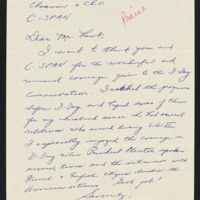 Chairman & CEO
C-SPAN
Praise
Dear Mr. Lamb,
I want to thank you and
C-SPAN for the wonderful and
unusual coverage given to the D-Day
Commemoration. I watched the programs
before D-Day and taped some of them
for my husband since he had several
relatives who served during WWII.
I especially enjoyed the coverage on
D-Day when President Clinton spoke
several times and the interviews with
French & English citizens besides the
American veterans. Good job!
Sincerely,